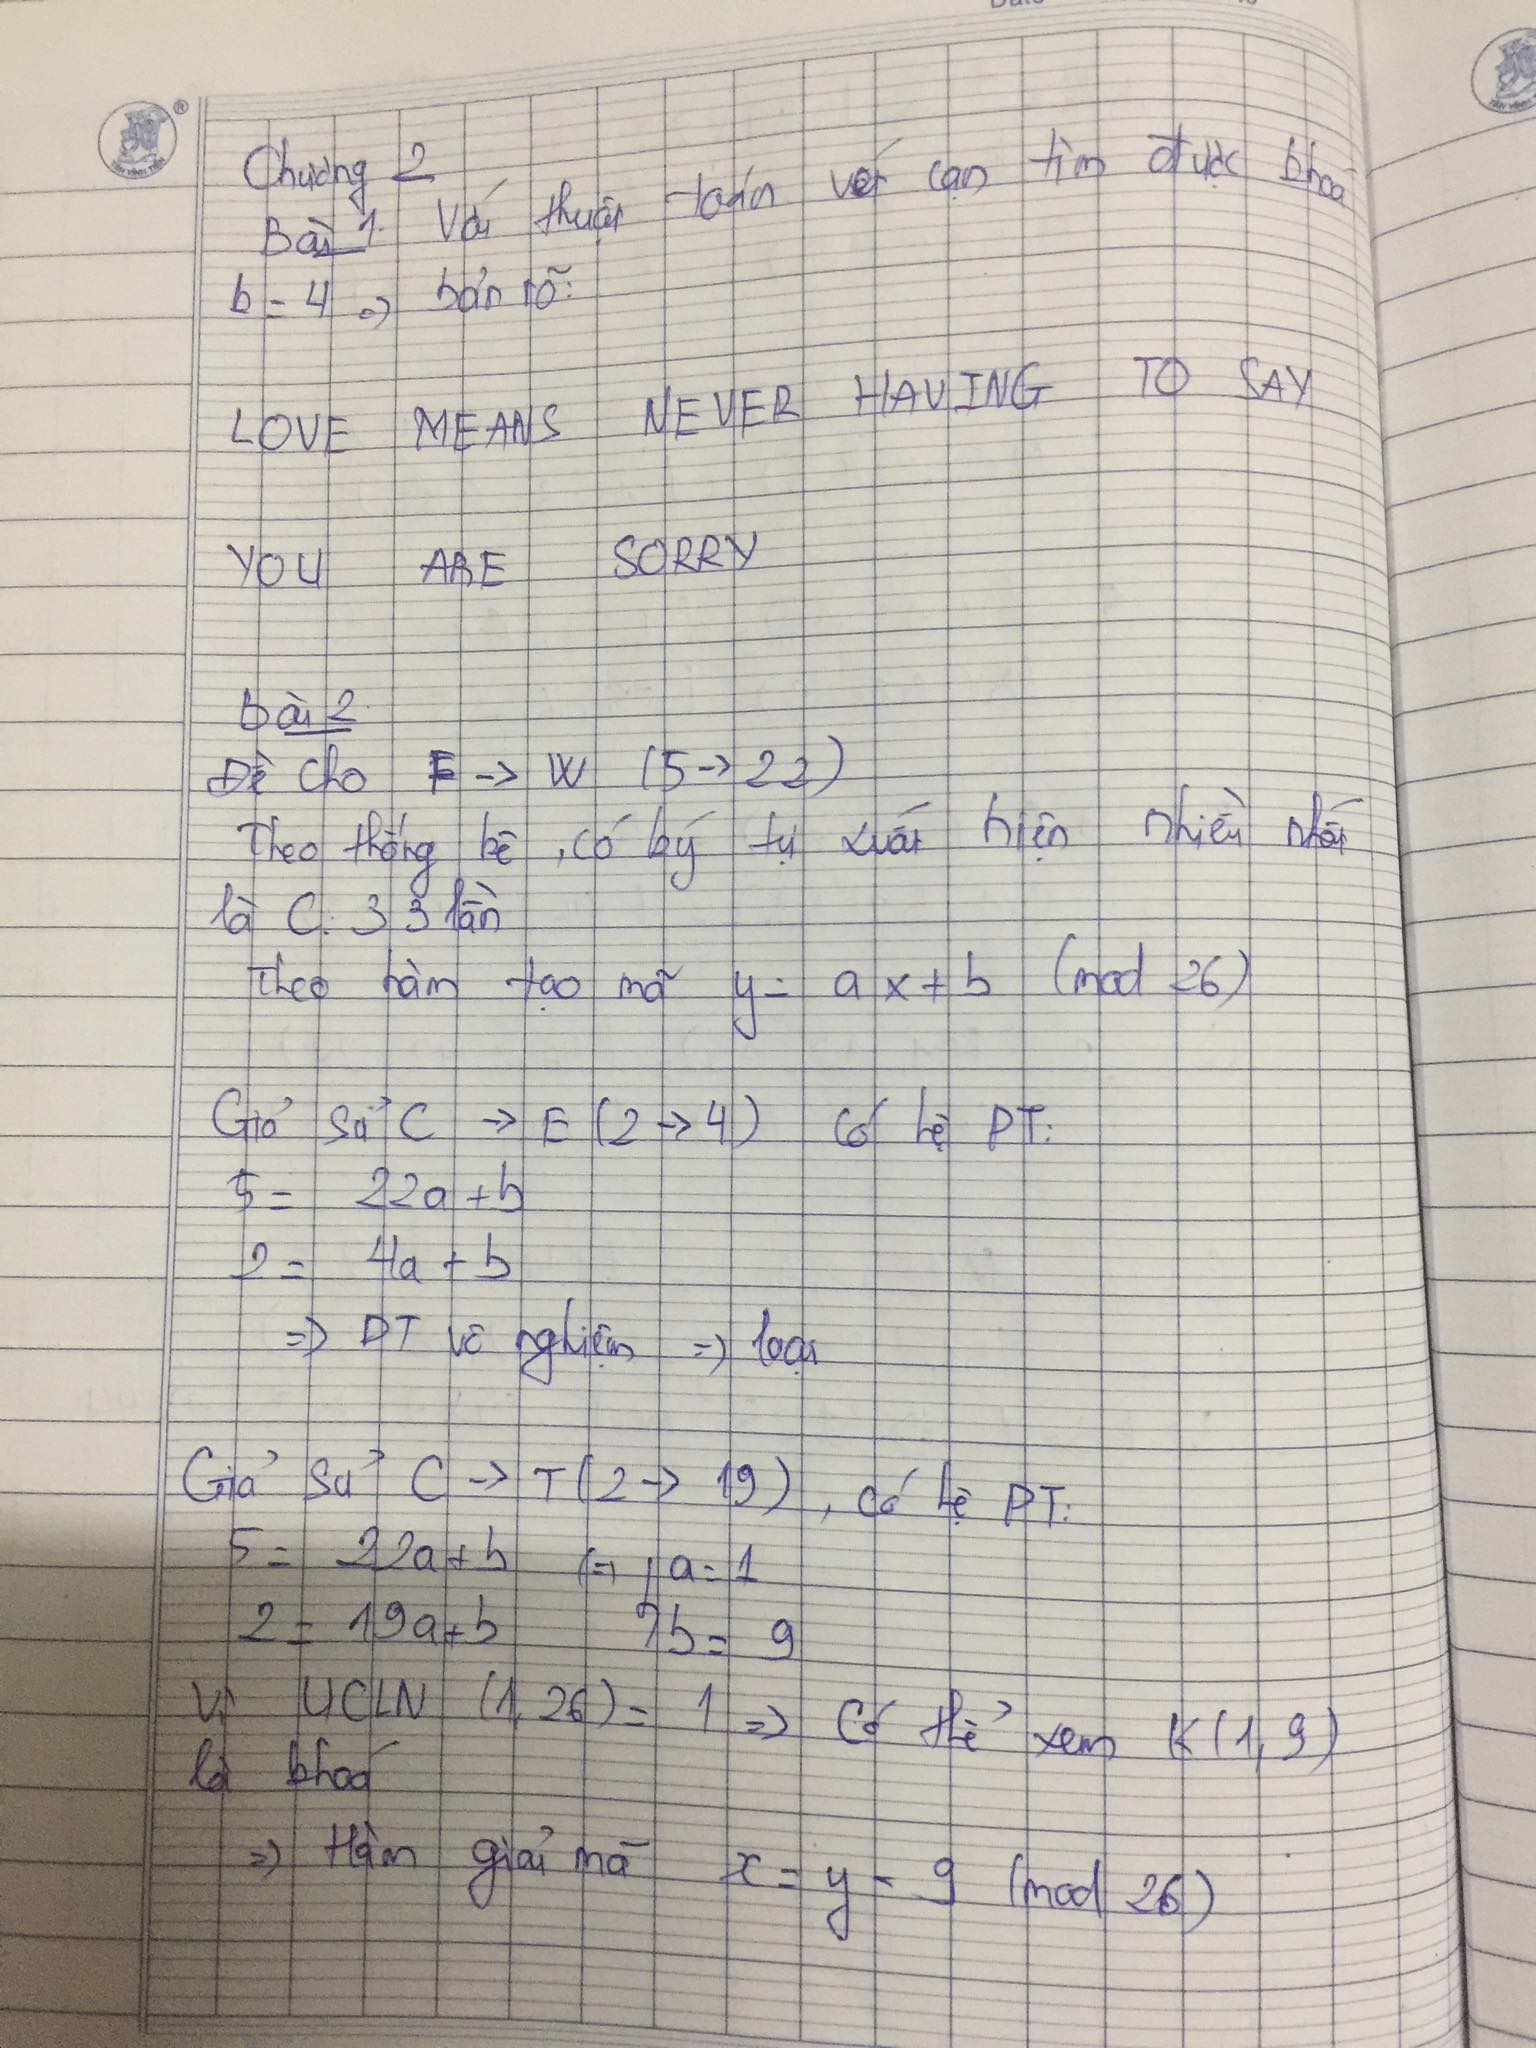 Chương 2
Bài 1. Với thuật toán vét cạn tìm được khoá
b = 4 => bản rõ:
LOVE MEANS NEVER HAVING TO SAY
YOU ARE SORRY
bài 2
Đề cho F -> W (5 -> 22)
Theo thống kê, có ký tự xuất hiện nhiều nhất
là C: 33 lần
Theo hàm tạo mã y = ax + b (mod 26)
Giả sử C -> E (2 -> 4) Có hệ PT:
5 = 22a + b
2 = 4a + b
=> PT vô nghiệm => loại
Giả sử C -> T (2 -> 19), có hệ PT:
5 = 22a + b (=) { a = 1
2 = 19a + b b = 9
Vì UCLN (1, 26) = 1 => Có thể xem K(1, 9)
là khoá
=> Hàm giải mã x = y - 9 (mod 26)